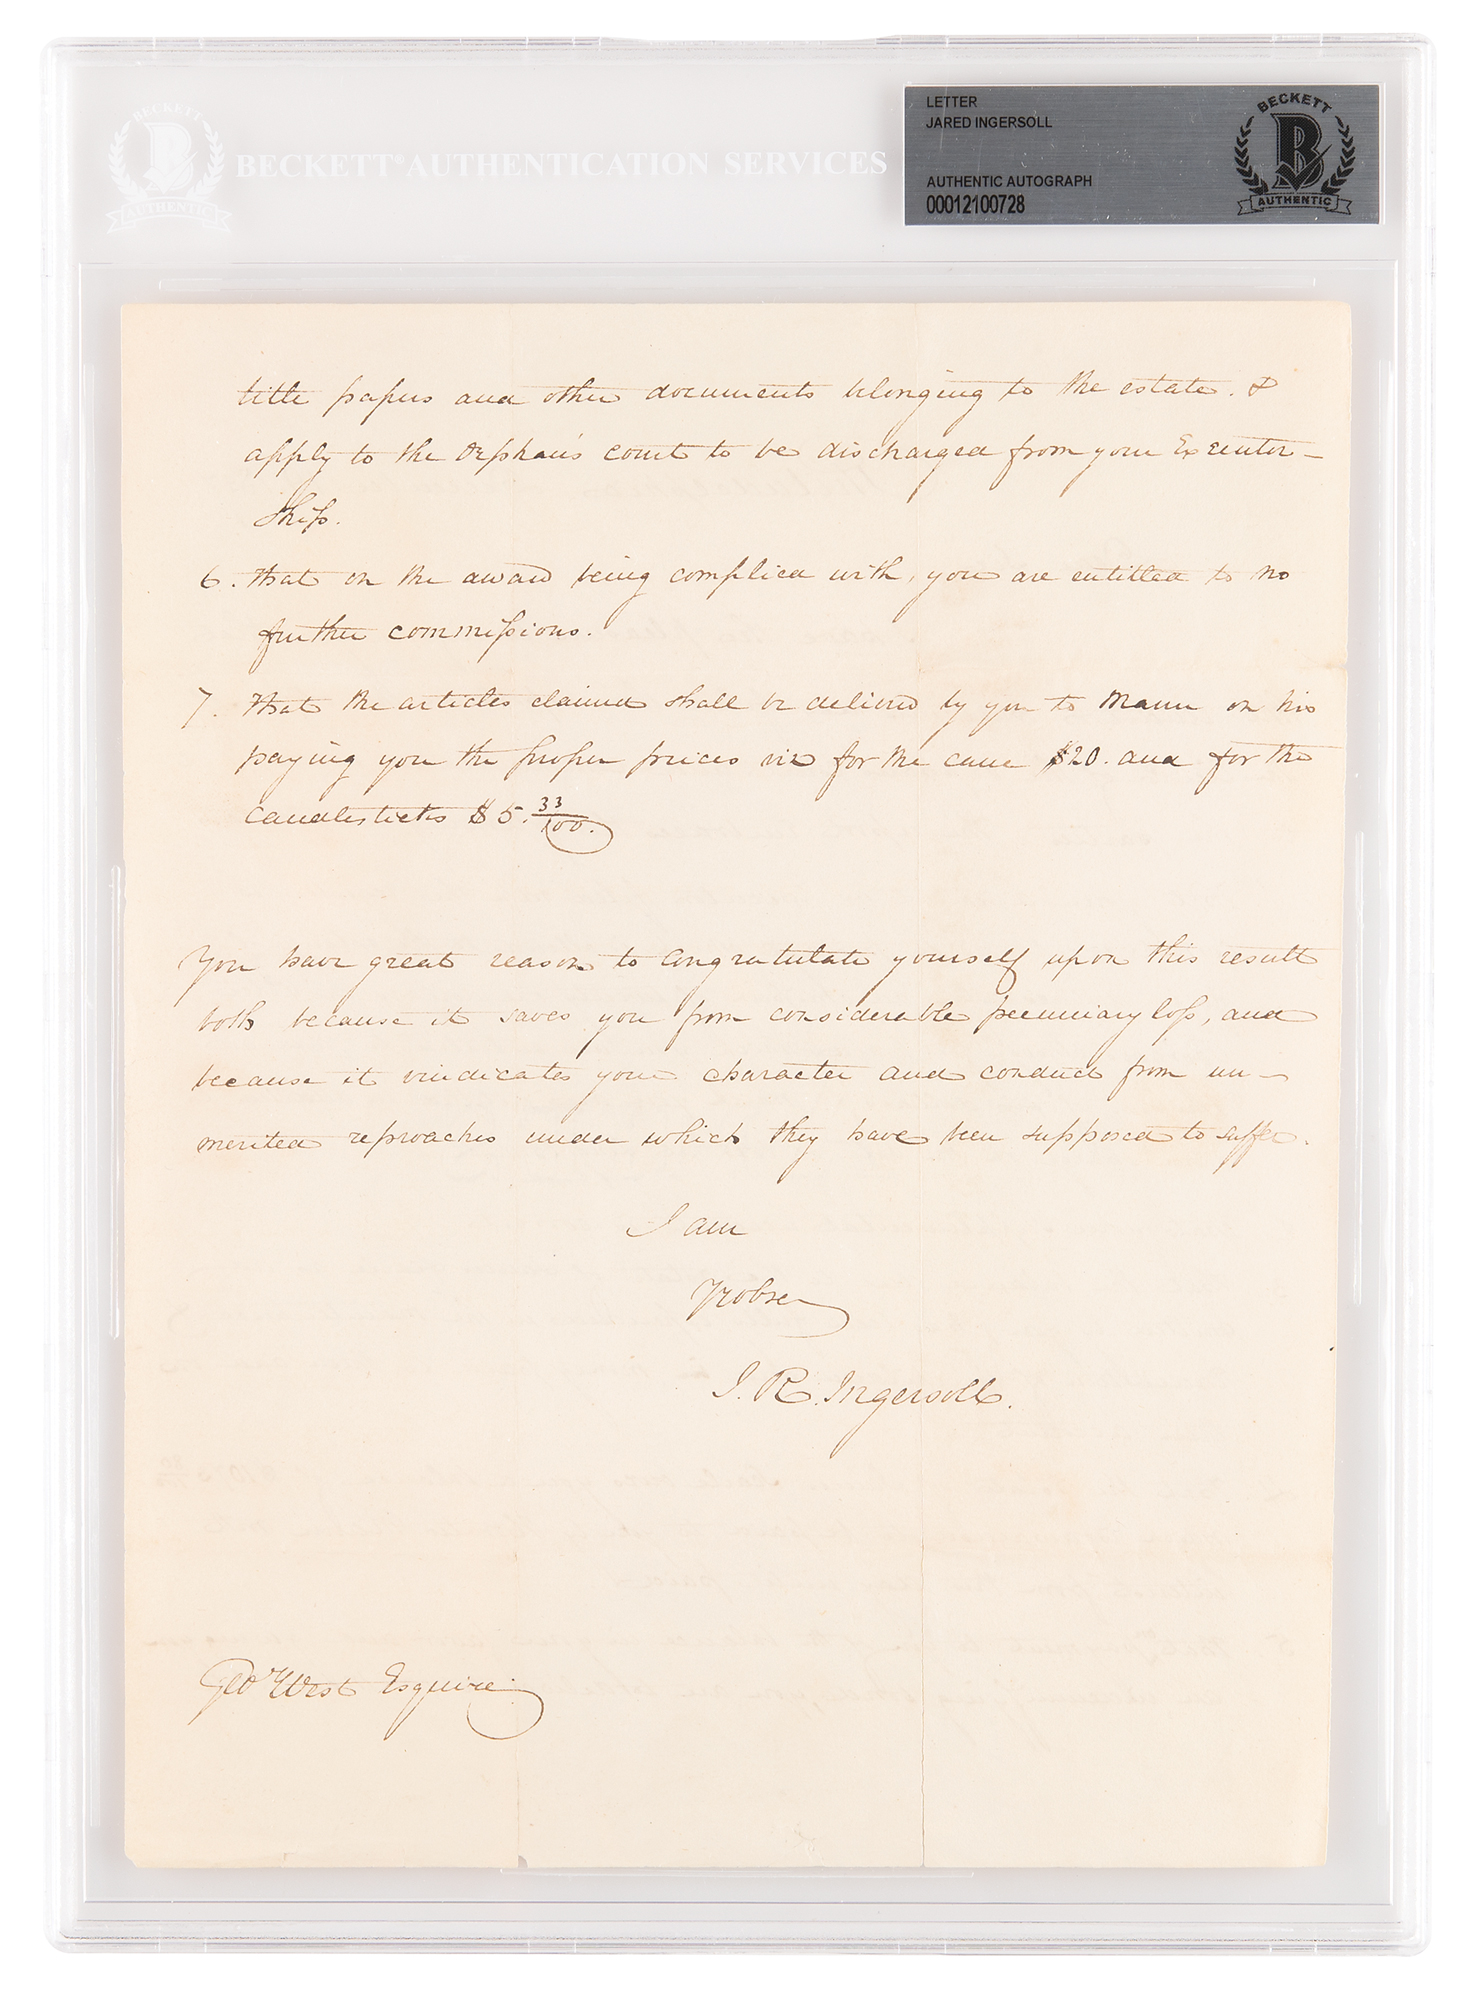 BECKETT
AUTHENTIC
BECKETT® AUTHENTICATION SERVICES
LETTER
JARED INGERSOLL
AUTHENTIC AUTOGRAPH
00012100728
BECKETT
B
AUTHENTIC
title papers and other documents belonging to the estate. &
apply to the Orphan's court to be discharged from your Executor-
ship.
6. that on the award being complied with, you are entitled to no
further commissions.
7. that the articles claimed shall be delivered by you to Mann on his
paying you the proper prices viz for the cane $20. and for the
candlesticks $5. 33/100.
You have great reason to congratulate yourself upon this result
both because it saves you from considerable pecuniary loss, and
because it vindicates your character and conduct from un-
merited reproaches under which they have been supposed to suffer.
I am
Yrobser
J. R. Ingersoll.
Geo West Esquire